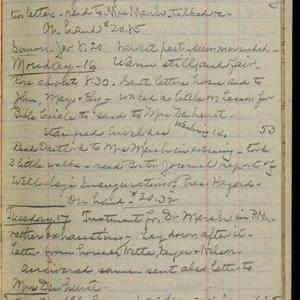 two letters - read to Mrs Marsh, talked etc -
On hand $20.85
Sermon Jer 8:20 harvest past, summer ended -
Monday - 16 Warm still and fair -
Rose about 8:30. Sent letters home and to
John, May + Ely - worked a little on lesson for
Bible Circle to send to Mrs Dewhurst.
Stamped Envelopes Washing 14 53
Read to Mrs Marsh in evening - took
3 little walks - read Boston Journal report of
Wellesley's Inauguration of Pres. Hazard -
On hand - $20.32
Tuesday 17 Treatment for Dr Marsh in P.M.
rather exhausting - lay down after it -
Letters from house, Wattie, + Nelson -
answered same - sent also letter to
Mrs Dewhurst.